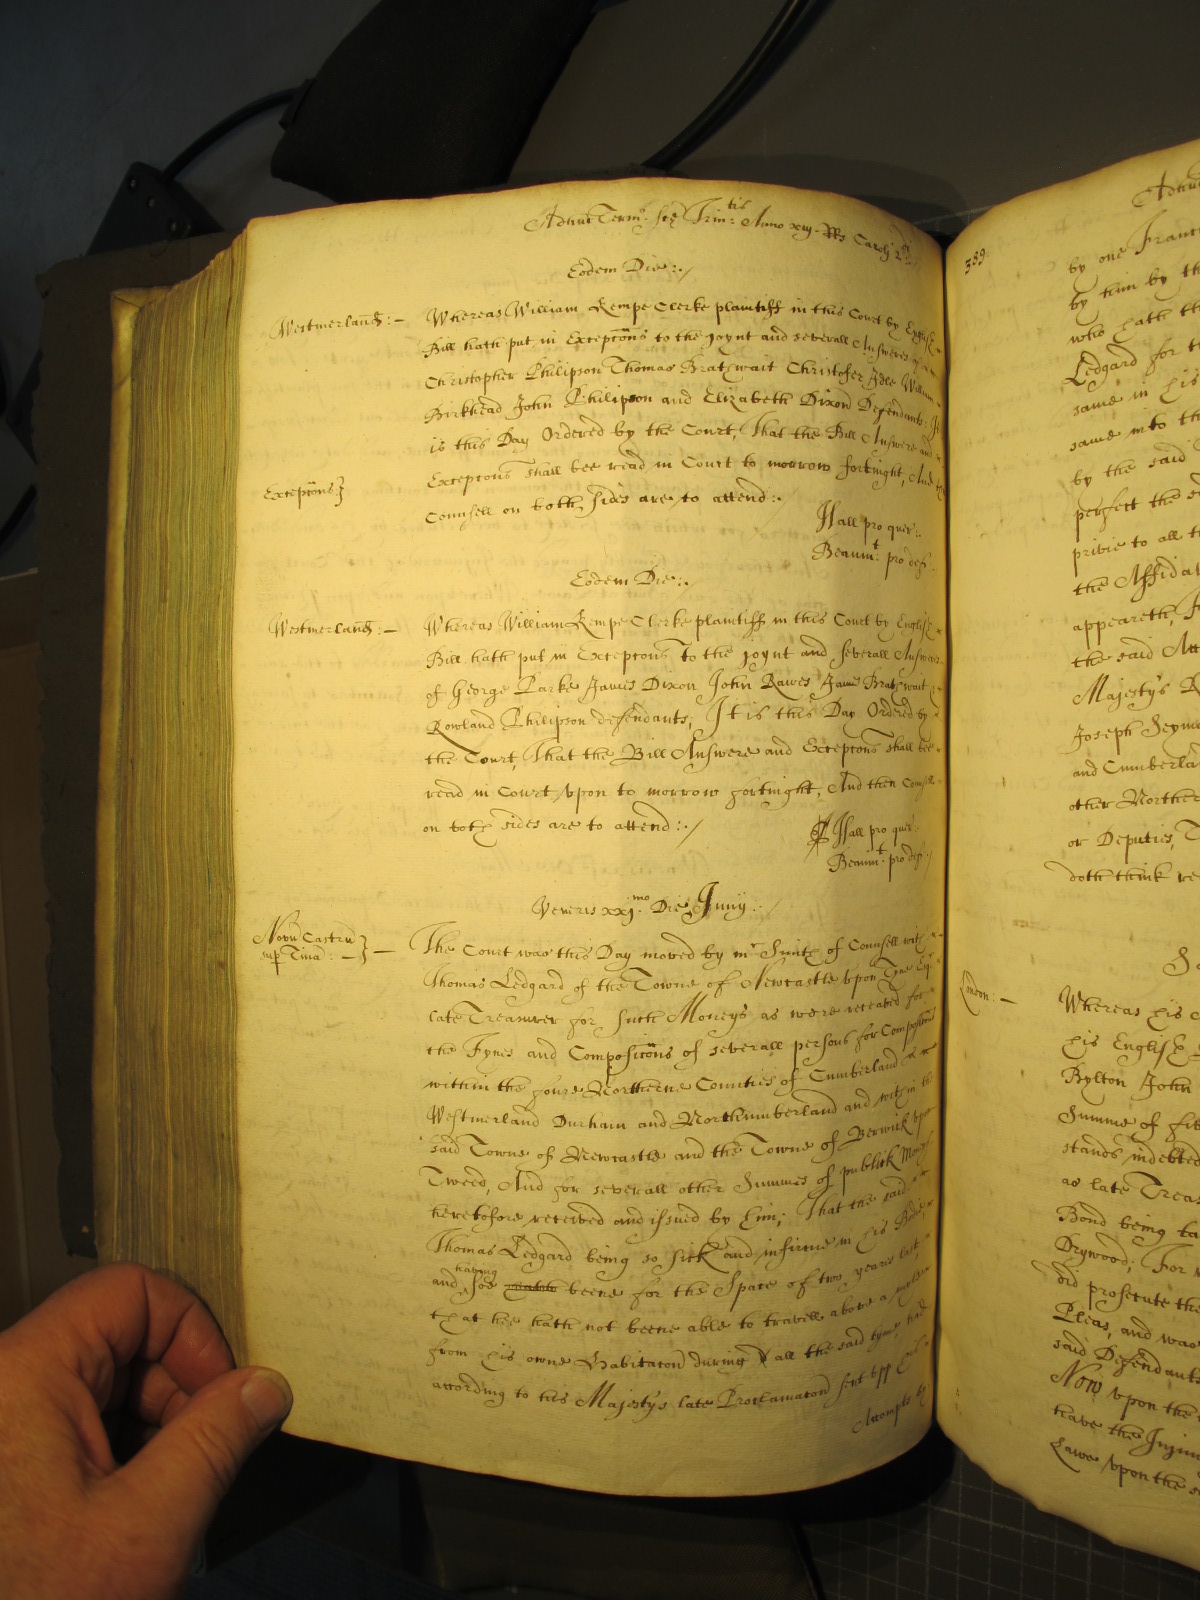 Adhuc Term: Scē Trin:tis Anno xiij. RRs Caroli 2di
Eodem Die:./
Westmerland: —
Whereas William Kempe Clerke plaintiff in this Court by English
Bill hath put in Excepcōns to the joynt and severall Answeres of
Christopher Philipson Thomas Brathwait Christofer Idle William
Birkhead John Philipson and Elizabeth Dixon Defendants. It
is this Day Ordered by the Court, That the Bill Answere and
Excepcons shall bee read in Court to morrow fortnight, And the
Excepcōns}
Counsell on both sides are to attend:.
Hall pro quer:.
Beaumt: pro def.
Eodem Die:.
Westmerland: —
Whereas William Kempe Clerke plaintiff in this Court by English
Bill hath put in Excepcons to the joynt and severall Answeres
of George Parke James Dixon John Rawes James Brathwait
Rowland Philipson defendants, It is this Day Ordered by
the Court, That the Bill Answere and Excepcons shall bee
read in Court vpon to morrow fortnight, And then Counsell
on both sides are to attend:./
Hall pro quer.
Beaumt. pro def./
Veneris xxjmo. Die Junij:./
Novū Castrū
sup Tinā: — } —
The Court was this Day moved by mr Smith of Counsell with
Thomas Ledgard of the Towne of Newcastle vpon Tyne Esqr
late Treasurer for such Moneys as were received for
the Fynes and Composicōns of severall persons for Composicons
within the foure Northerne Counties of Cumberland
Westmerland Durham and Northumberland and within the
said Towne of Newcastle and the Towne of Berwick vpon
Tweed, And for severall other Summes of publick Moneys
heretofore received and issued by him; That the said
Thomas Ledgard being so sick and infirme in his Bodie
and soe having beene for the Space of two yeares last
that hee hath not beene able to travell above a myle
from his owne Habitacon during all the said tyme had
according to his Majestys late Proclamacon sent vpp his
Accompts by
389.
by one Franc
by him by th
who hath th
Ledgard for t
same in his
same into th
by the said
perfect the s
privie to all t
the Affida
appeareth,
the said Att
Majestys R
Joseph Seym
and Cumberla
other Norther
or Deputies, T
doth think re
London: —
Whereas his
his English
Bylton John
Summe of fi
stands indebted
as late Treas
Bond being ta
Drywood; For
did prosecute the
Pleas, and was
said Defendants
Now vpon the
have the Injun
Lawe vpon the s